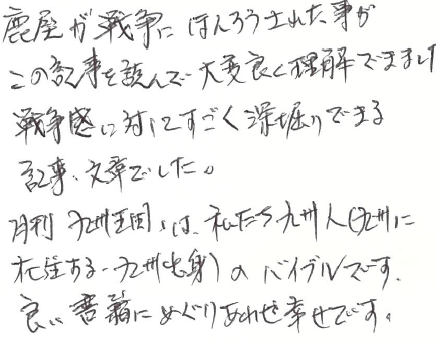 鹿屋が戦争にほんろうされた事が
この記事を読んで大変良く理解できまし
戦争感に対してすごく深堀りできる
記事、文章でした。
月刊九州王国は、私たち九州人(九州に
在住する-九州出身)のバイブルです。
良い書籍にめぐりあわせ幸せです。